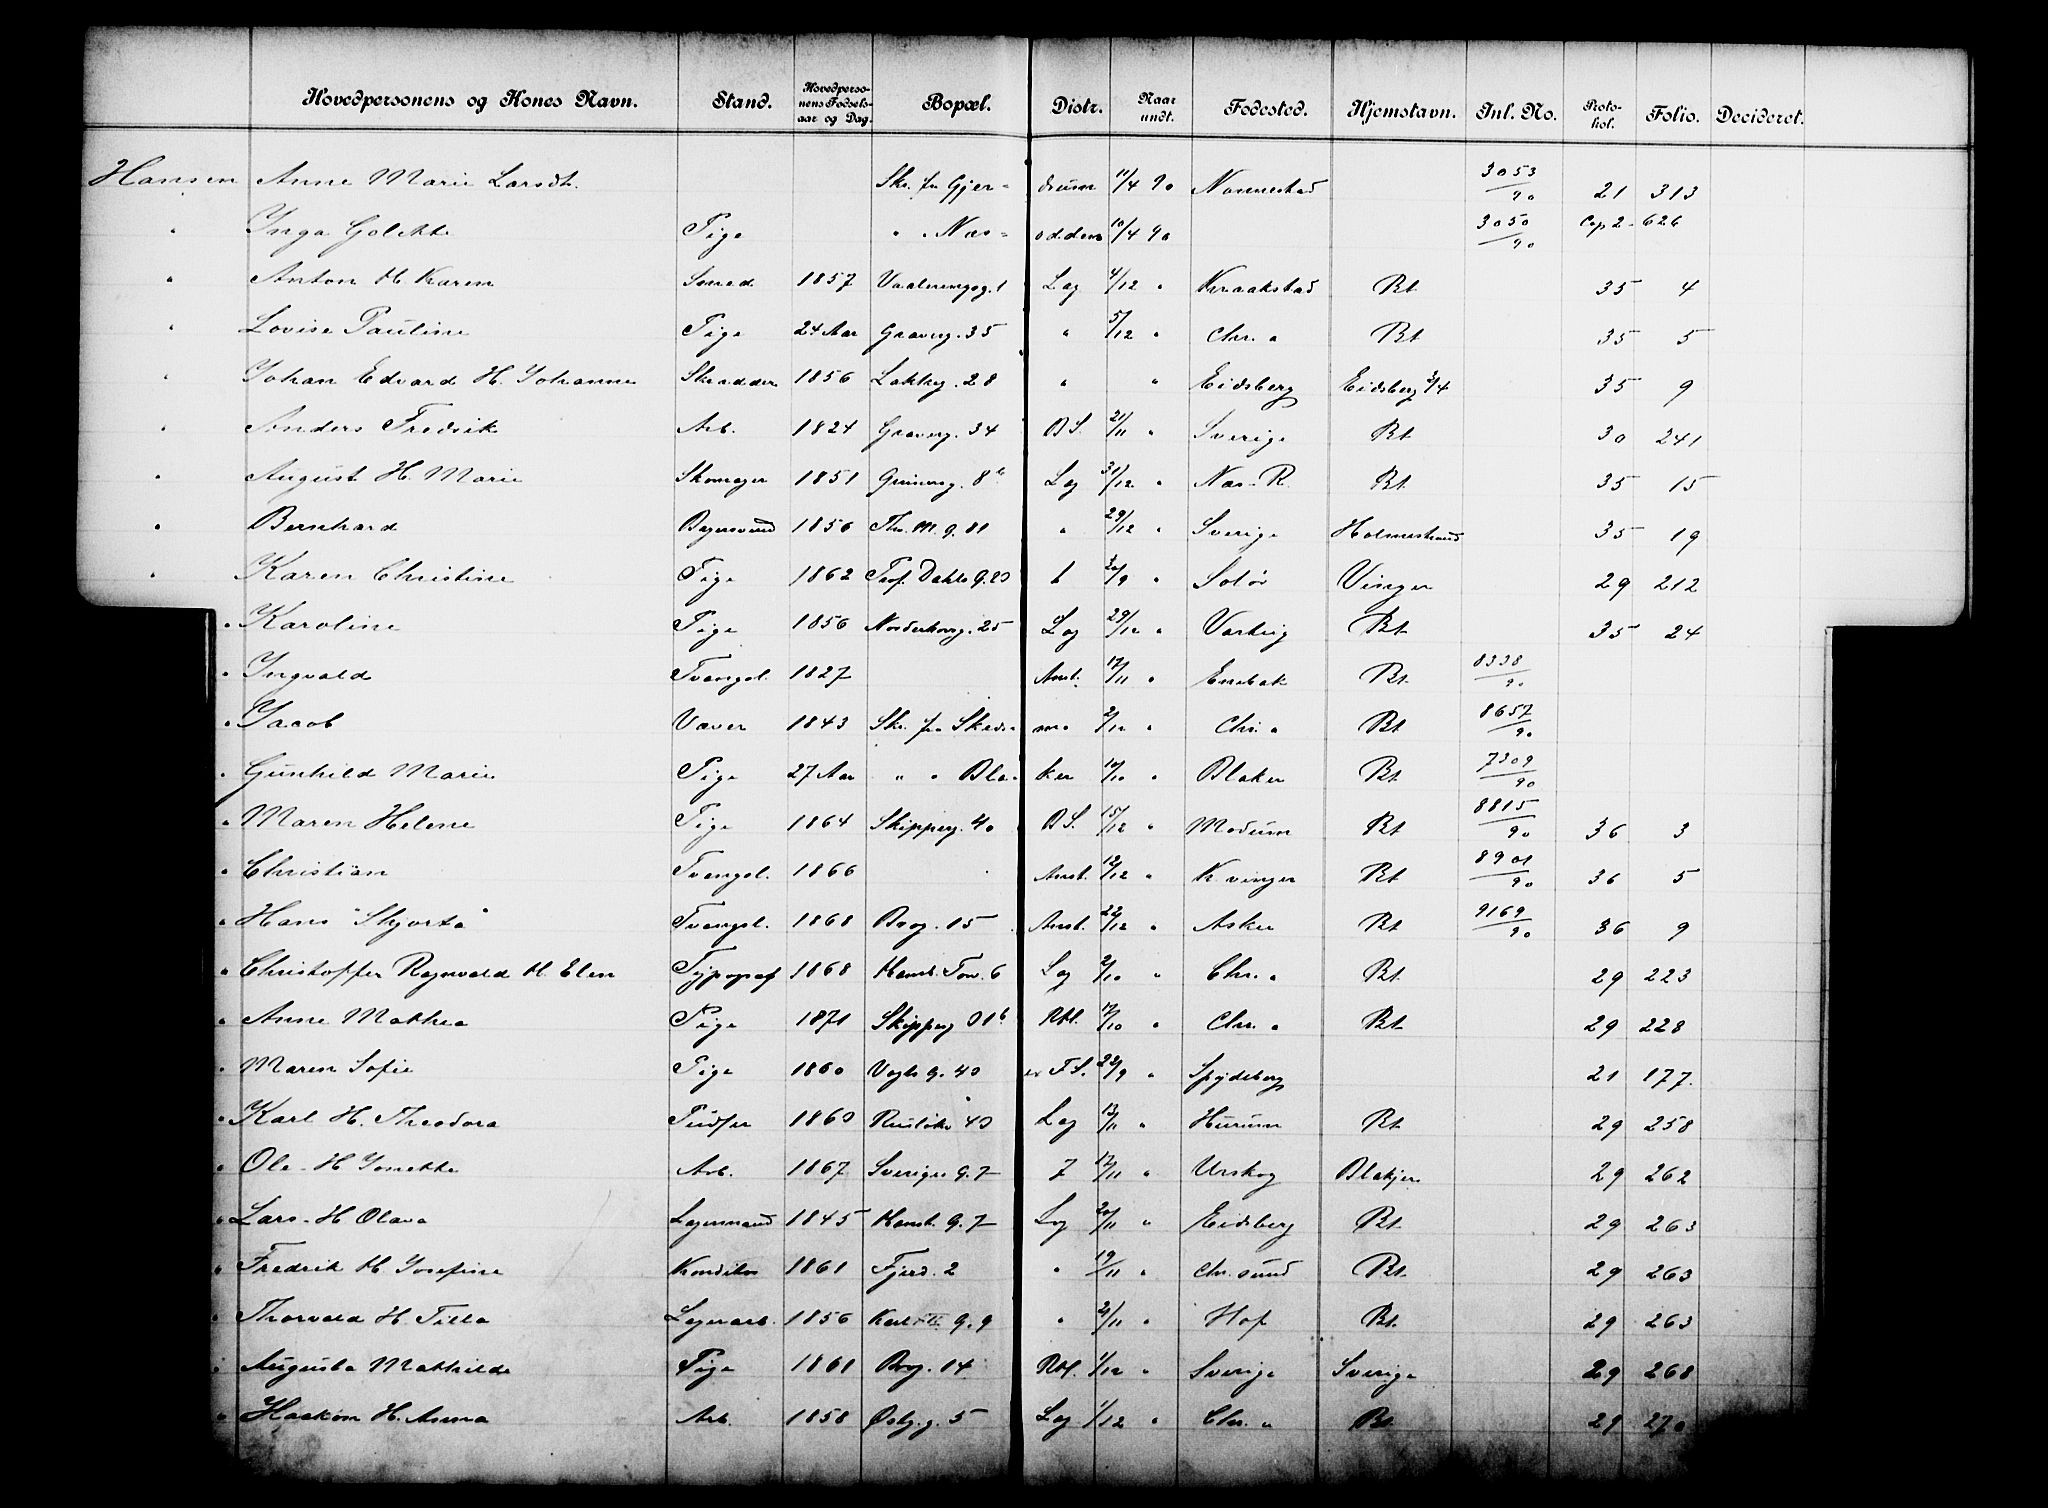 Hovedpersonens og Kones Navn. Stand. Hovedpersonens Fødselsaar og Dag. Bopæl. Distr. Naar undt. Fødested. Hjemstavn. Inl. No. Protokol. Folio. Decideret.
Hansen Anne Marie Larsdt. Skr. fra Gjerdrum 11/4 90 Nannestad 3053/90 21 313
" Inga Golette Pige " " Nesodden 10/4 90 3050/90 Cop 2 - 626
" Anton H. Karen Smed 1857 Vaalerengg. 1 Lag 4/12 " Kraakstad Bt. 35 4
" Lovise Pauline Pige 24 Aar Graverg. 35 " 5/12 " Chr. a Bt 35 5
" Johan Edvard H. Johanne Skrædder 1856 Lakkeg. 28 " " Eidsberg Eidsberg 3/4 35 9
" Anders Fredrik Arb. 1824 Graverg. 34 BS. 21/11 " Sverige Bt 30 241
" August H. Marie Skomager 1851 Grünerg. 8 b Lag 31/12 " Nes. R. Bt. 35 15
" Bernhard Bagersvend 1856 Th. M. g. 81 " 29/12 " Sverige Holmestrand 35 19
" Karen Christine Pige 1862 Prof. Dahls G. 20 6 30/9 " Solør Vinger 29 212
" Karoline Pige 1856 Norderhovg. 25 Lag 29/12 " Varteig Bt. 35 24
" Ingvald Tvangsl. 1827 Anst. 17/11 " Enebak Bt. 8338/90
" Jacob Væver 1843 Skr. fra Skedsmo 2/12 " Chr. a Bt 8657/90
" Gunhild Marie Pige 27 Aar " " Blaker 10/10 " Blaker Bt 7309/90
" Maren Helene Pige 1864 Skipperg. 40 BS. 15/12 " Modum Bt 8815/90 36 3
" Christian Tvangsl. 1866 Anst. 12/12 " K.vinger Bt 8901/90 36 5
" Hans "Skjorta" Tvangsl. 1868 Brog. 15 Anst. 22/12 " Asker Bt 9169/90 36 9
" Christoffer Ragnvald H. Elen Typograf 1868 Hamb. Torv. 6 Lag 2/10 " Chr. a Bt. 29 223
" Anne Mathea Pige 1871 Skipperg 31 b Rbl. 17/10 " Chr. a Bt. 29 228
" Maren Sofie Pige 1860 Vogts G. 40 FS. 22/9 " Spydeberg 21 177.
" Karl H. Theodora Pudser 1860 Ruseløk 40 Lag 13/11 " Hurum Bt. 29 258
" Ole - H Jonette Arb. 1867 Sveriges G. 7 7 17/11 " Urskog Blakjer 29 262
" Lars - H Olava Lagermand 1845 Hamb. G. 7 Lag 20/11 " Eidsberg Bt. 29 263
" Fredrik H. Josefine Konditor 1861 Fjerd. 2 " 19/11 " Chr. sund Bt. 29 263
" Thorvald H. Tilla Lagerarb. 1856 Karl XII G. 9 " 21/11 " Hof Bt. 29 263
" Augusta Mathilde Pige 1861 Brog. 14 Rbl. 1/12 " Sverige Sverige 29 268
" Haakon H. Anna Arb. 1858 Østg. g. 5 Lag 1/12 " Chr. a Bt 29 270